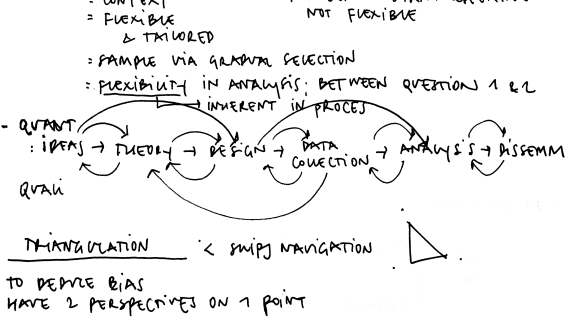 = CONTEXT
= FLEXIBLE
& TAILORED
NOT FLEXIBLE
= SAMPLE VIA GRADUAL SELECTION
= FLEXIBILITY IN ANALYSIS; BETWEEN QUESTION 1 & 2
→ INHERENT IN PROCES
- QUANT
: IDEAS → THEORY → DESIGN → DATA COLLECTION → ANALYSIS → DISSEMM
QUALI
TRIANGULATION < SHIPS NAVIGATION
TO DEDUCE BIAS
HAVE 2 PERSPECTIVES ON 1 POINT